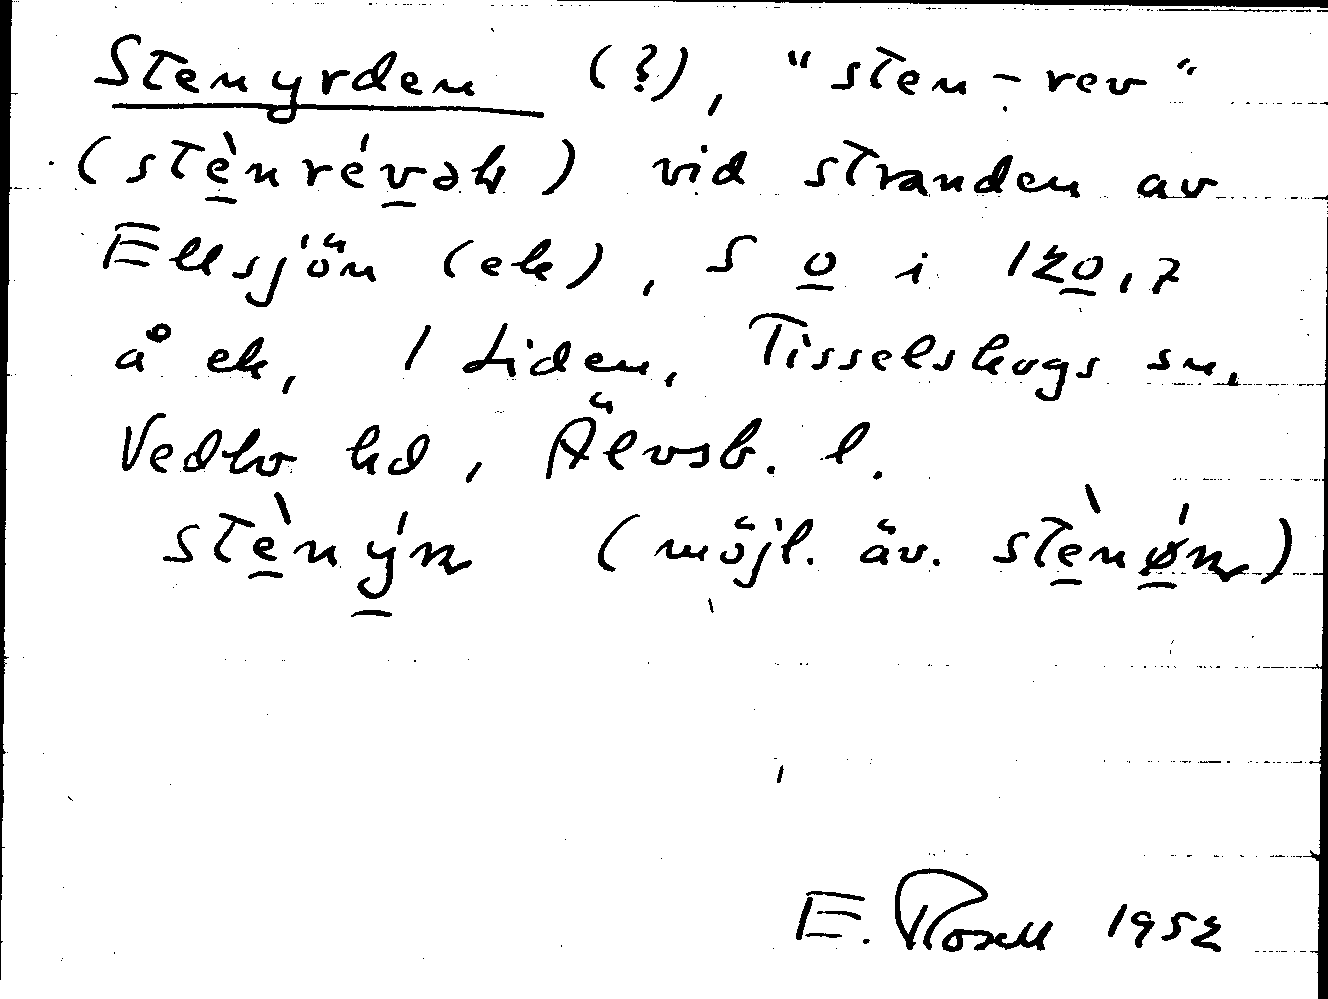 Stenyrden (?), "sten-rev"
(stènrévək) vid stranden av
Ellsjön (ek), S o i 120,7
å ek, 1 Liden, Tisselskogs sn,
Vedbo hd, Älvsb. l.
stènýn (möjl. äv. stènǿn)
E. Rosell 1952